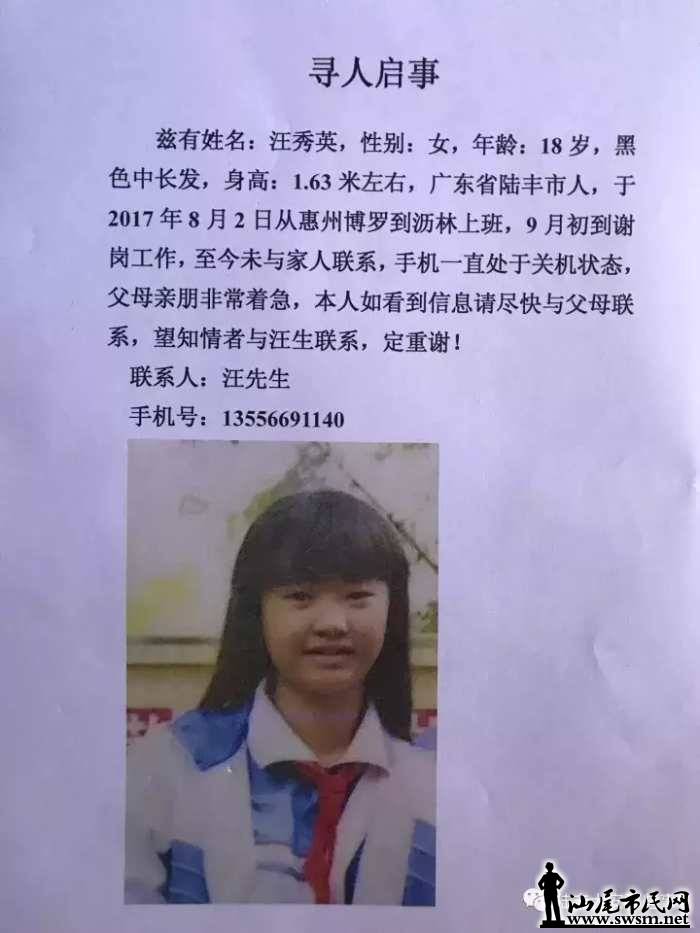 寻人启事
兹有姓名：汪秀英，性别：女，年龄：18岁，黑
色中长发，身高：1.63米左右，广东省陆丰市人，于
2017年8月2日从惠州博罗到沥林上班，9月初到谢
岗工作，至今未与家人联系，手机一直处于关机状态，
父母亲朋非常着急，本人如看到信息请尽快与父母联
系，望知情者与汪生联系，定重谢！
联系人：汪先生
手机号：13556691140
汕尾市民网
www.swsm.net